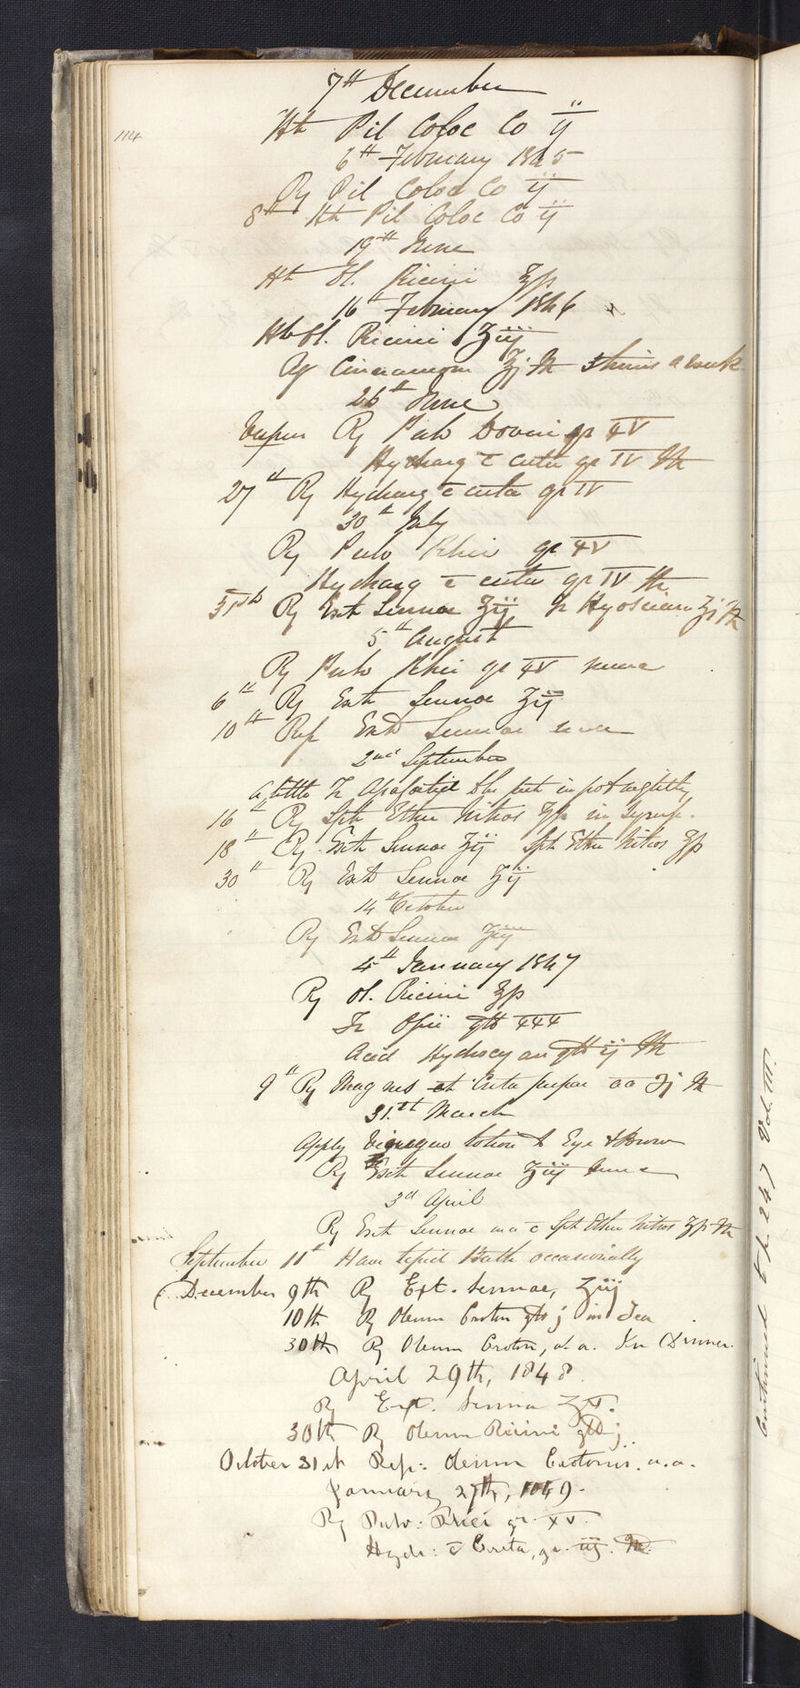 114
7th December
Ht Pil Coloc Co ij
6th February 1845
Rx Pil Coloc Co ij
8th Ht Pil Coloc Co ij
19th June
Ht Ol. Ricini ℥p
16th February 1846
Ol. Ricini ʒiij
Aq Cinnamom ℥j Ht a week
26th June
Rx Pulv Doveri gr
Hydrarg c creta gr IV Ht
27th Rx Hydrarg c creta gr IV
30th July
Rx Pulv Rhei gr XV
Hydrarg c creta gr IV Ht
31st Rx Ext Sennae ʒij Tr Hyosciam ʒj Ht
5th August
Rx Pulv Rhei gr XV
6th Rx Ext Sennae ʒij
10th Rep Ext Sennae
2nd September
a little Tr to be put in pot nightly
16th Rx Spt Ether Nitros ʒp in Syrup.
18th Rx Ext Sennae ʒij Spt Ether Nitros ʒp
30th Rx Ext Sennae ʒij
14th October
Rx Ext Sennae ʒiij
4th January 1847
Rx Ol. Ricini ℥p
Tr Opii gtt XXX
Acid Hydrocyan gtt ij Ht
9th Rx Magnes et Creta prepar aa ʒj Ht
31st March
Apply Lotion to Eye & Brow
Rx Ext Sennae ʒiij
3rd April
Rx Ext Sennae c Spt Ether Nitros ʒp Ht
September 11th Have tepid Bath occasionally
December 9th Rx Ext. Sennae, ʒiij
10th Rx Oleum Croton gtt j in Tea
30th Rx Oleum Croton, u.a. In Dinner.
April 29th, 1848.
Rx Ext. Senna
30th Rx Oleum Ricini
October 31st Rep: Oleum Crotonis. u.a.
January 27th, 1849.
Rx Pulv: Rhei gr. XV.
Hydr: c Creta, gr. iij. Ht.
Continued to p. 247 Vol. III.